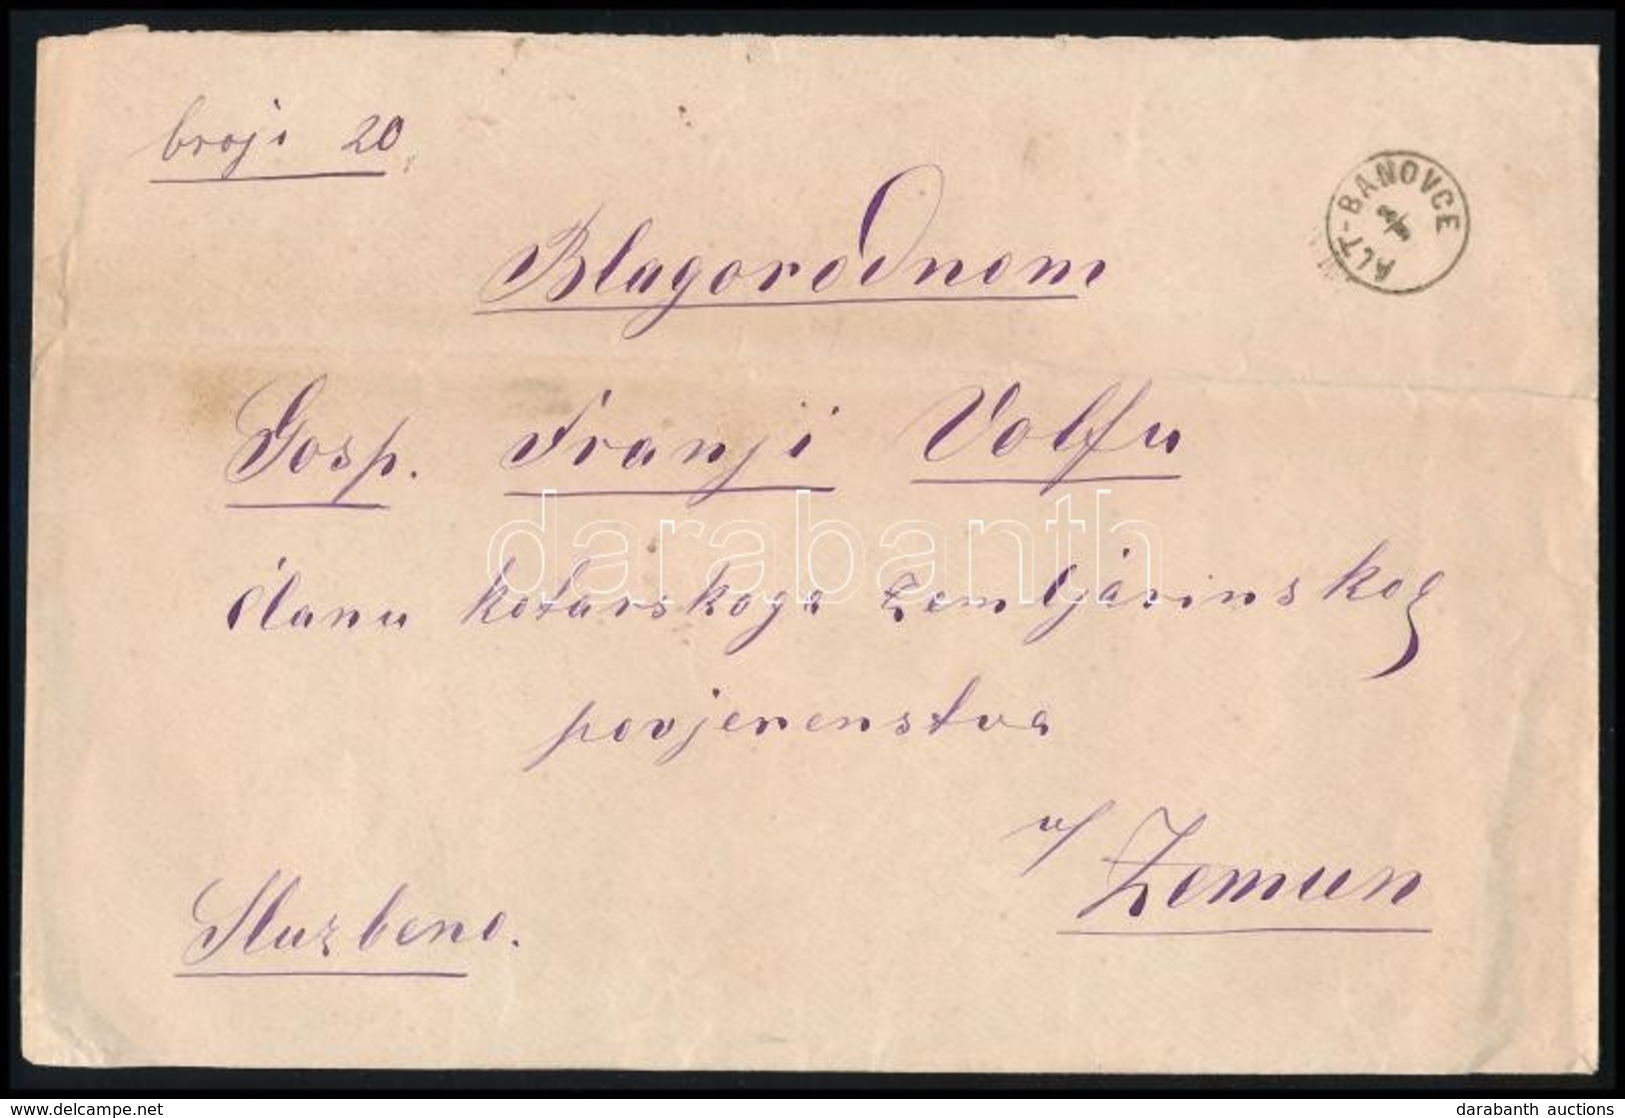 broji 20
ALT-BANOVCE
Blagorodnom
Gosp. Franji Volfu
članu kotarskoga zemljárinskog
povjerenstva
u/ Zemun
Sluzbeno.
darabanth
delcampe.net
darabanth auctions